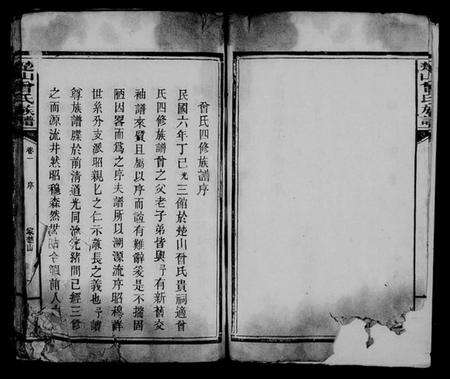 曾氏四修族譜序
民國六年丁巳光三館於楚山曾氏貴祠適曾
氏四修族譜曾之父老子弟皆與予有新舊交
袖譜來賀且屬以序而誼有難辭爰是不揣固
陋因畧而為之序夫譜所以溯源流序昭穆詳
世系分支派昭親親之仁示敬長之義也予讀
尊族譜牒於前清道光同治光緒間已經三修
之而源流井然昭穆森然
前人
楚山曾氏族譜
卷一
序
楚山曾氏族譜